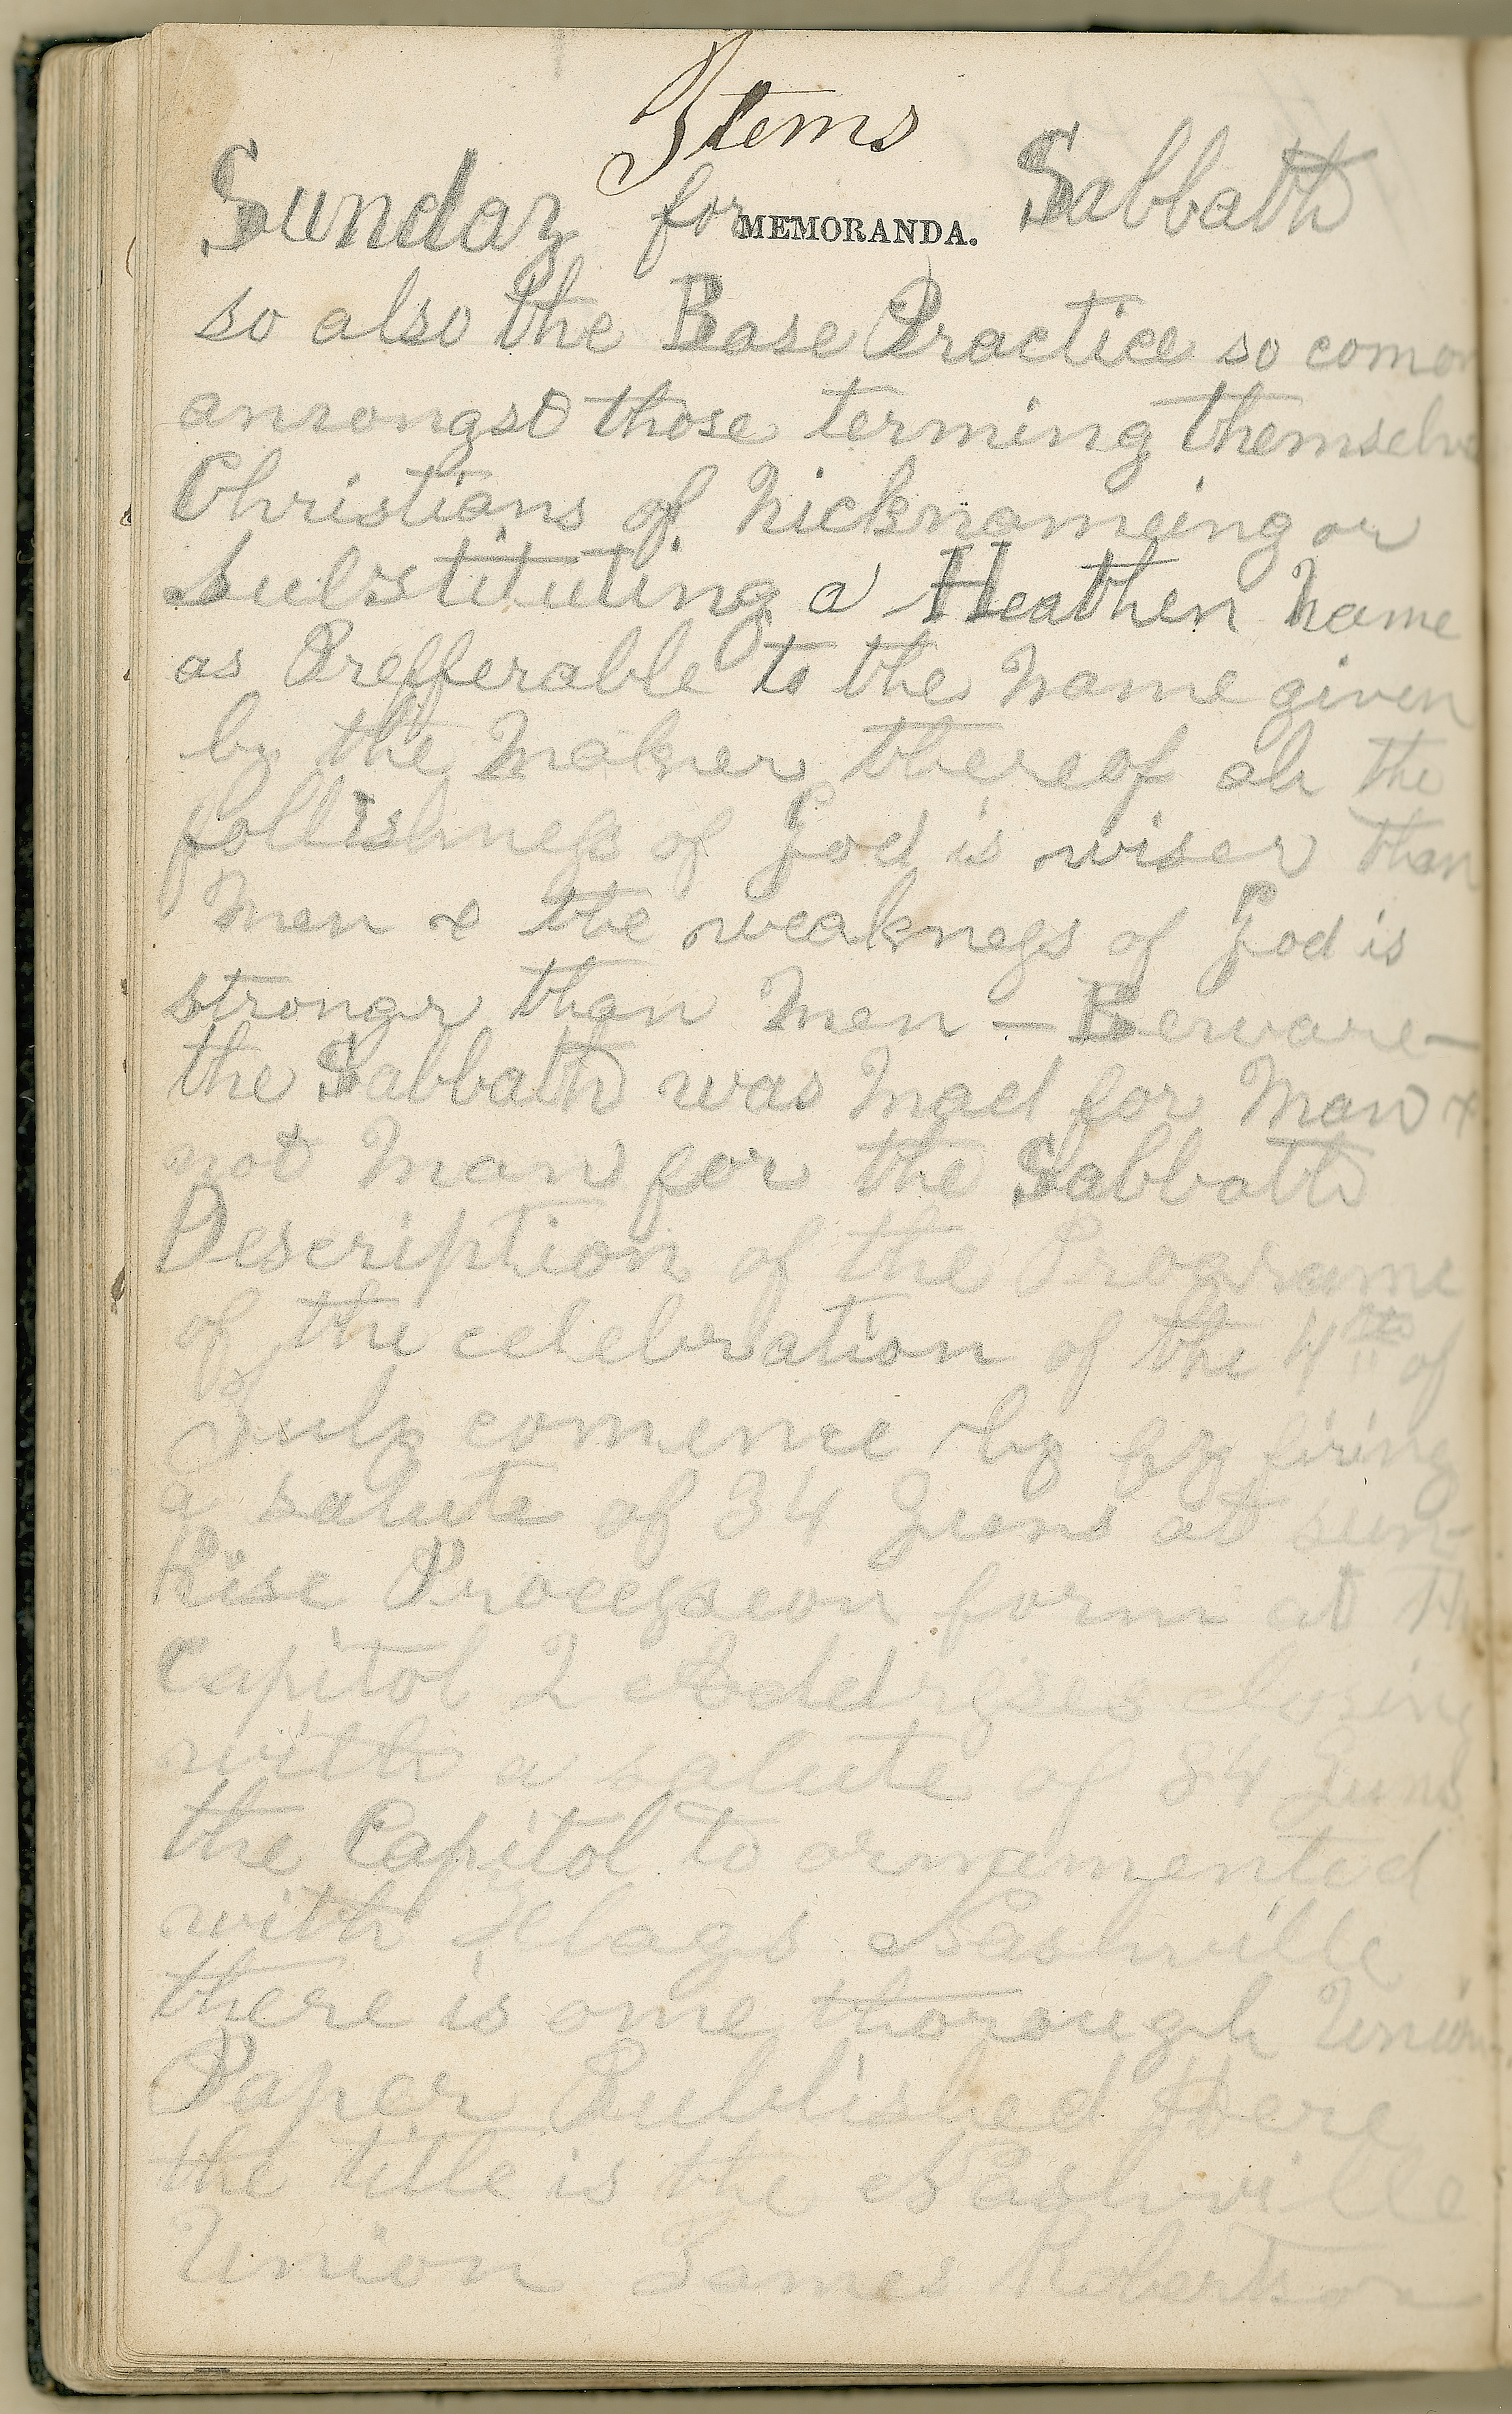 Items
Sunday for MEMORANDA. Sabbath
so also the Base Practice so comon
amongst those terming themselve
Christians of Nicknameing or
Substituting a Heathen Name
as Prefferable to the Name given
by the Maker thereof ah the
follishness of God is wiser than
Men & the weakness of God is
strongr than Men — Beware —
the Sabbath was Mad for Man &
not Man for the Sabbath
Description of the Programe
of the celebration of the 4th of
July comence by by firing
a salute of 34 Guns at sun-
Rise Processeion form at The
Capitol 2 Addresses closing
with a salute of 34 Guns
the Capitol to ornamented
with Flags Nashville
there is one thorough Union
Paper Published Here
the title is the Nashville
Union James Robertson